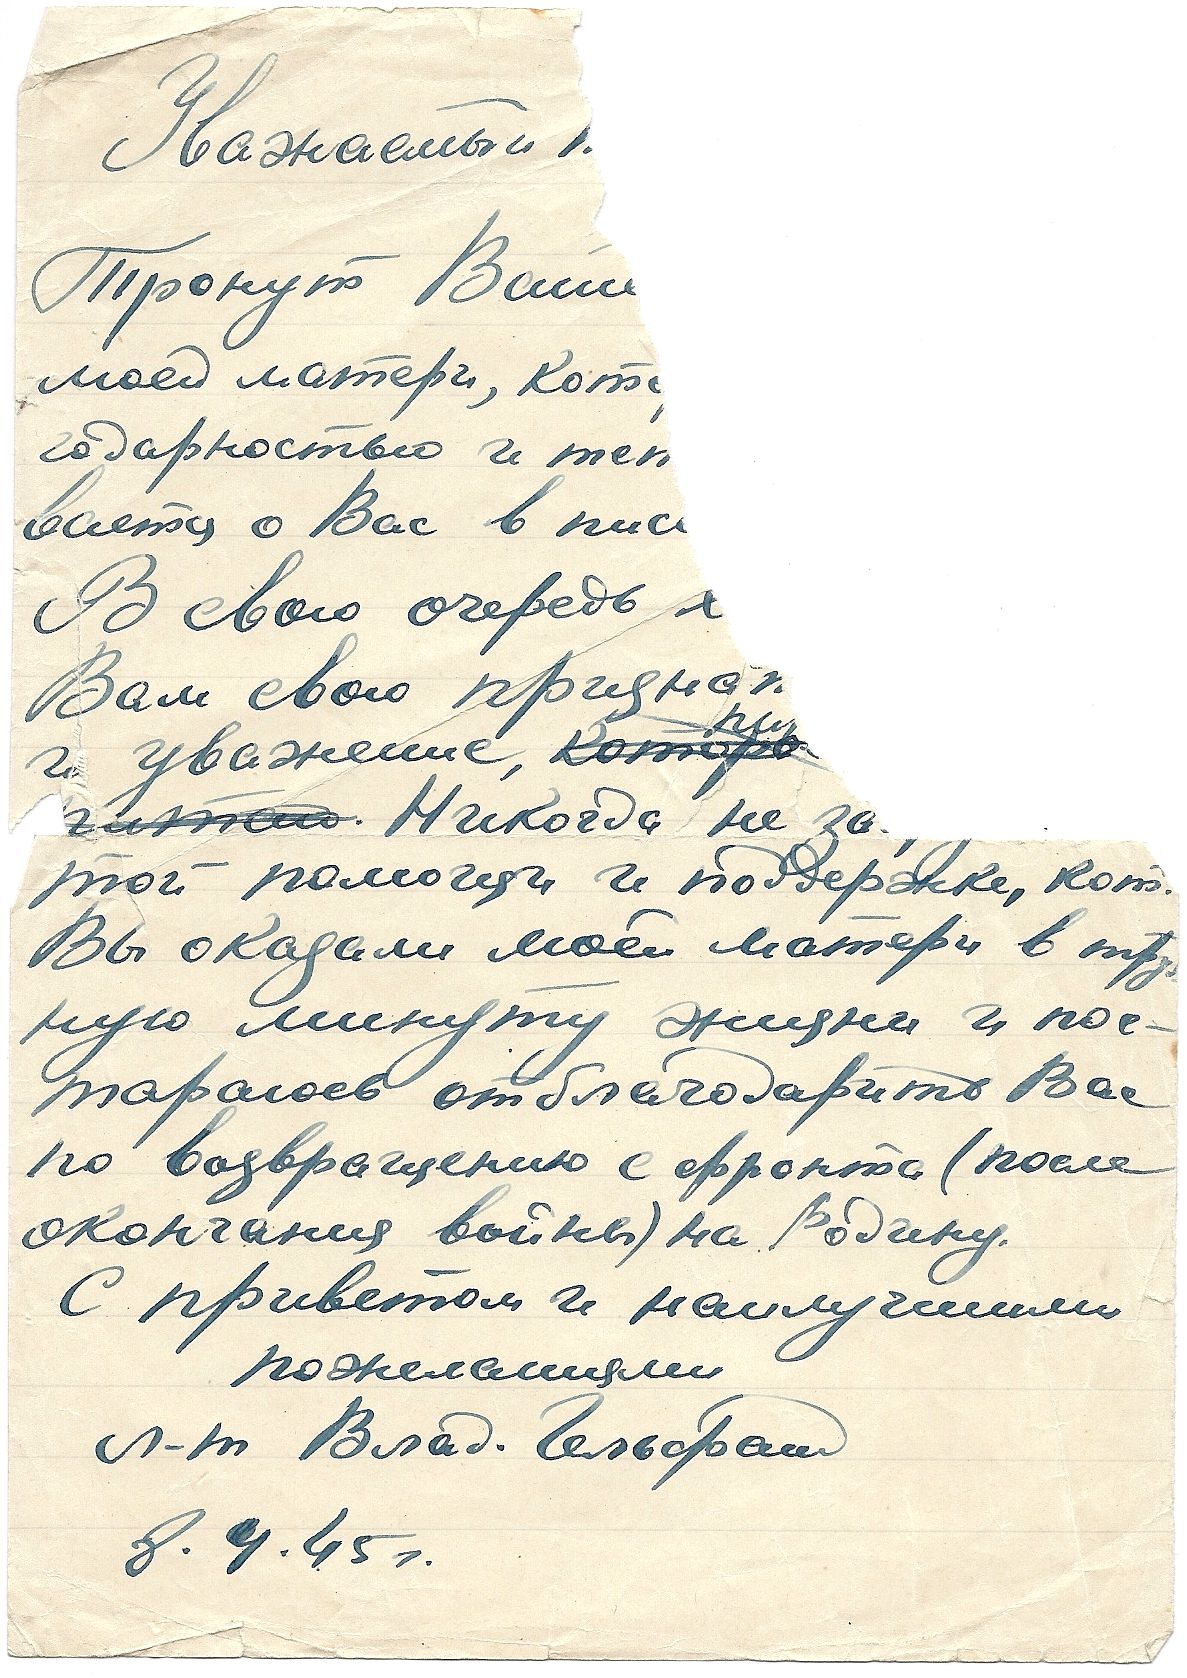 Уважаемый
Тронут Ваши
моей матери, кото
годарностью и теп
вается о Вас в пис
В свою очередь
Вам свою признат
и уважение, которы
питаю. Никогда не за
той помощи и поддержке, кот.
Вы оказали моей матери в труд
ную минуту жизни и пос-
тараюсь отблагодарить Вас
по возвращению с фронта (после
окончания войны) на Родину.
С приветом и наилучшими
пожеланиями
л-т Влад. Гельфанд
8. 4. 45 г.